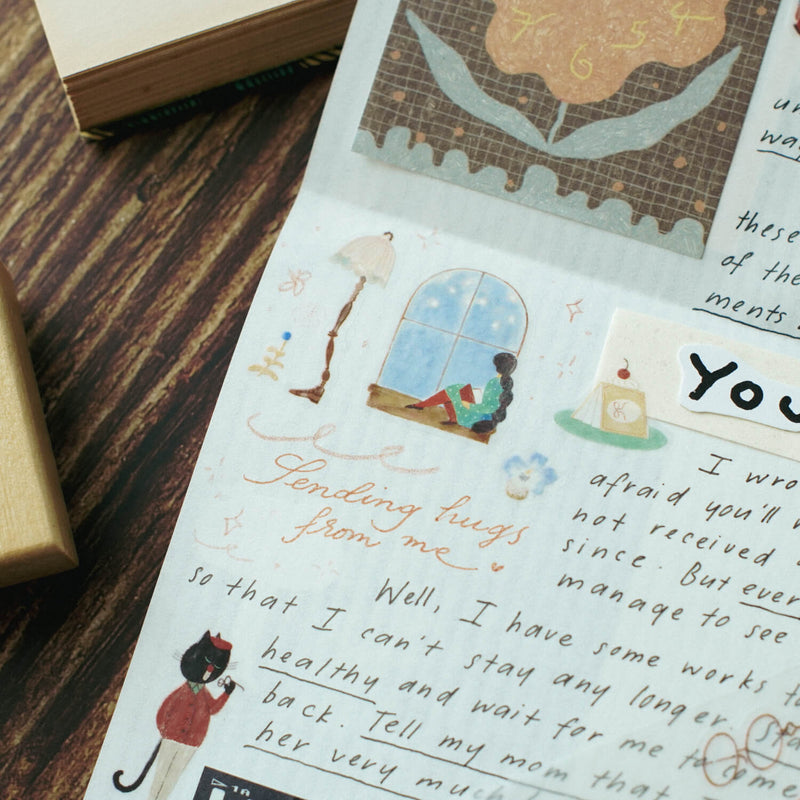 7 6 5 4
these
of the
ments
You
Sending hugs
from me
I wro
afraid you'll
not received
since. But ever
manage to see
Well, I have some works
so that I can't stay any longer. Sta
healthy and wait for me to come
back. Tell my mom that
her very much